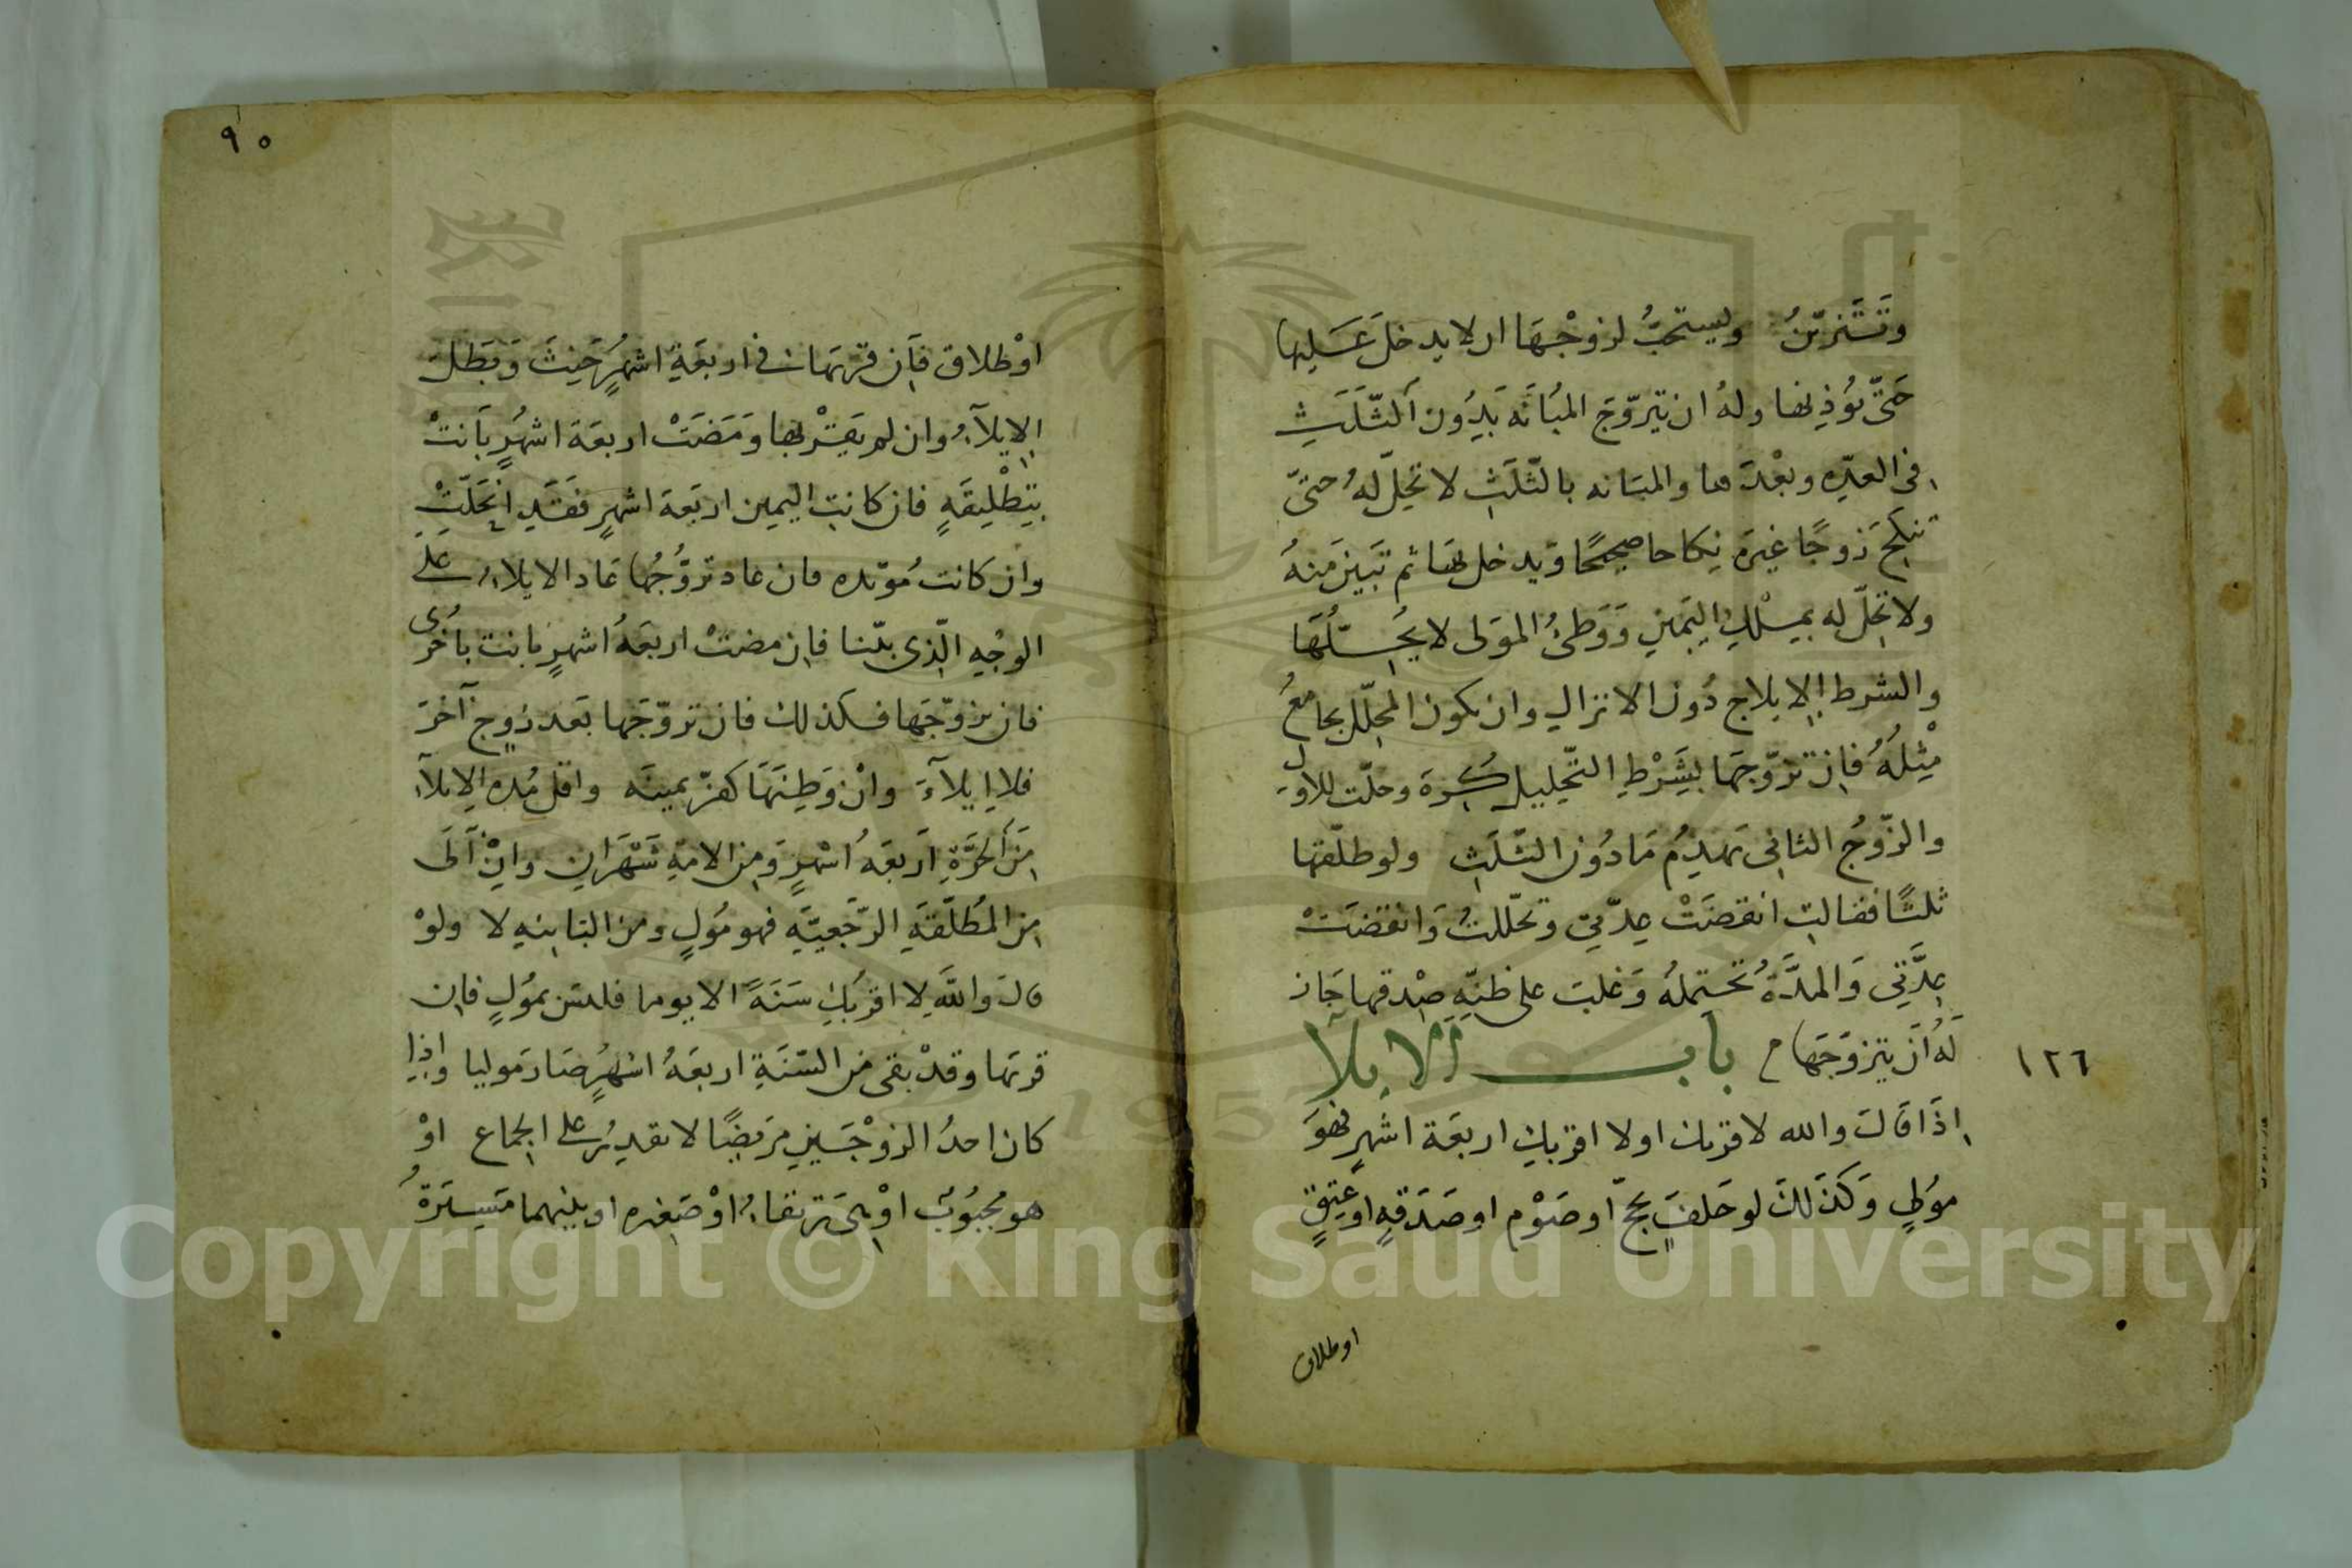 وَتَتَزيّنُ ويستحبُّ لزوْجهَا ان لا يدخلَ عَليها
حَتّى يؤذِنها ولهُ ان يتزوّجَ المبُانَه بَدِوُن اَلثّلَثِ
فى العدّهِ وبعْدَها والمبَانه بالثّلَثِ لا تحِلّ لهُ حتىّ
تنكِحَ زوجًا غيرَه نِكاحا صحيحًا وَيدخل بها ثم تبَيْنَ منهُ
ولا تحِلّ له بمِلْكِ اليَمِينِ وَوَطئُ الموَلى لا يحُِلّهَا
والشرط الاِيلاج دُون الانزالِ وان يكون المحِلّل يجامعُ
مْثِلُهُ فان تزوّجهَا بِشَرْطِ التّحليل كُرِهَ وحلّت للاوّل
والزّوجُ الثانى يَهدِمُ مَا دُون الثّلَثِ ولو طلّقها
ثلثًا فقالت انقضَتْ عِدّتى وتحّللتُ وَانقضَتْ
عِدَّتِي وَالمدَّةُ تحتمِلُه وَغلبَ على ظنِّهِ صِدْقها جَاز
لَهُ اَنْ يَتزوّجَهَا م باب الايلآ
١٢٦
اِذَا قَالَ والله لا قربك اولا اقربكِ اربعَة اشهرٍ فهوَ
موُلٍ وَكذَلكَ لو حَلفَ بحجٍّ او صَوْم او صَدَقهٍ او عِتقٍ
او طلاق
٩٠
اوْطلاق فَاِن قربَهَا فى اربعَةِ اشهُرٍ حَنِثَ وَبَطلَ
الاِيلآءُ وان لم يقرْبها وَمَضَتْ اربعَة اشهُرٍ بَانتْ
بتِطْلِيقَةٍ فان كانتِ اليمين اربَعَة اشهرٍ فقَدِ انحَلّتْ
وان كانت مُوّبده فان عاد تزوَّجُها عَاد الايلاءُ علَى
الوجْهِ الّذى بيّنا فان مضتْ اربعَةُ اشهرٍ بانت باُخرُى
فان تزوّجَها فكذلك فان تزوّجَها بَعد زوجٍ آخرَ
فلا اِيلآءَ وانْ وَطِئهَا كفرّ يمينَه واقل مُده الاِيلآء
مِنَ الحُرَّةِ اَربعَه اُشهرٍ وَمِن الامَةِ شَهَرانِ واِنْ آلَى
مِن المطُلّقَهِ الرّجعيّهِ فهو مُولٍ ومن الباينهِ لا ولوْ
قالَ واللهِ لا اقرَبُكِ سَنَةً الا يوما فليسَ بموُلٍ فاِن
قربَها وقدْ بقى مِن السّنَةِ اربعَهُ اشهُرٍ صَارَ موليا واِذا
كان احدُ الزوْجَينِ مرَيضًا لا يقدِرُ على الجماع اوْ
هو مجبُوبٌ اوْ هِىَ رتقاءُ اوْ صَغيره او بينهما مَسِيرَةُ